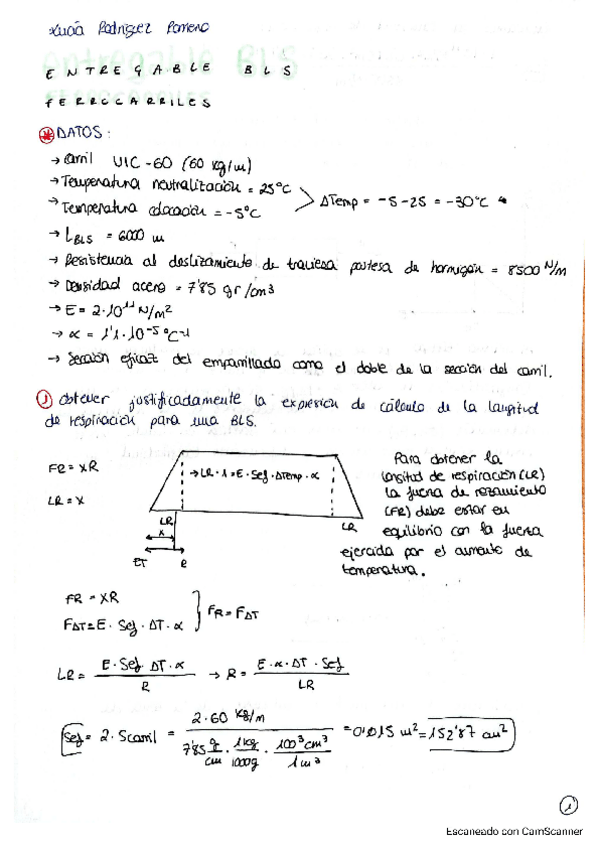 Lucía Rodríguez Romero
entregable BLS
ENTREGABLE BLS
FERROCARRILES
* DATOS:
→ carril UIC-60 (60 kg/m)
→ Temperatura neutralización = 25°C
→ Temperatura colocación = -5°C
ΔTemp = -5-25 = -30°C
→ L BLS = 6000 m
→ Resistencia al deslizamiento de traviesa postesa de hormigón = 8500 N/m
→ Densidad acero = 7'85 gr/cm³
→ E = 2·10¹¹ N/m²
→ α = 1'1·10⁻⁵ °C⁻¹
→ Sección eficaz del emparrillado como el doble de la sección del carril.
1 Obtener justificadamente la expresión de cálculo de la longitud
de respiración para una BLS.
FR = XR
LR = X
→ LR · 1 = E · Sef · ΔTemp · α
LR
x
ET
e
LR
Para obtener la
longitud de respiración (LR)
la fuerza de rozamiento
(FR) debe estar en
equilibrio con la fuerza
ejercida por el aumento de
temperatura.
FR = XR
FΔT = E · Sef · ΔT · α
} FR = FΔT
LR = E · Sef ΔT · α / R → R = E · α · ΔT · Sef / LR
Sef = 2 · Scarril = 2·60 kg/m / 7'85 g/cm · 1kg/1000g · 100³cm³/1m³ = 0'015 m² = 152'87 cm²
1
Escaneado con CamScanner